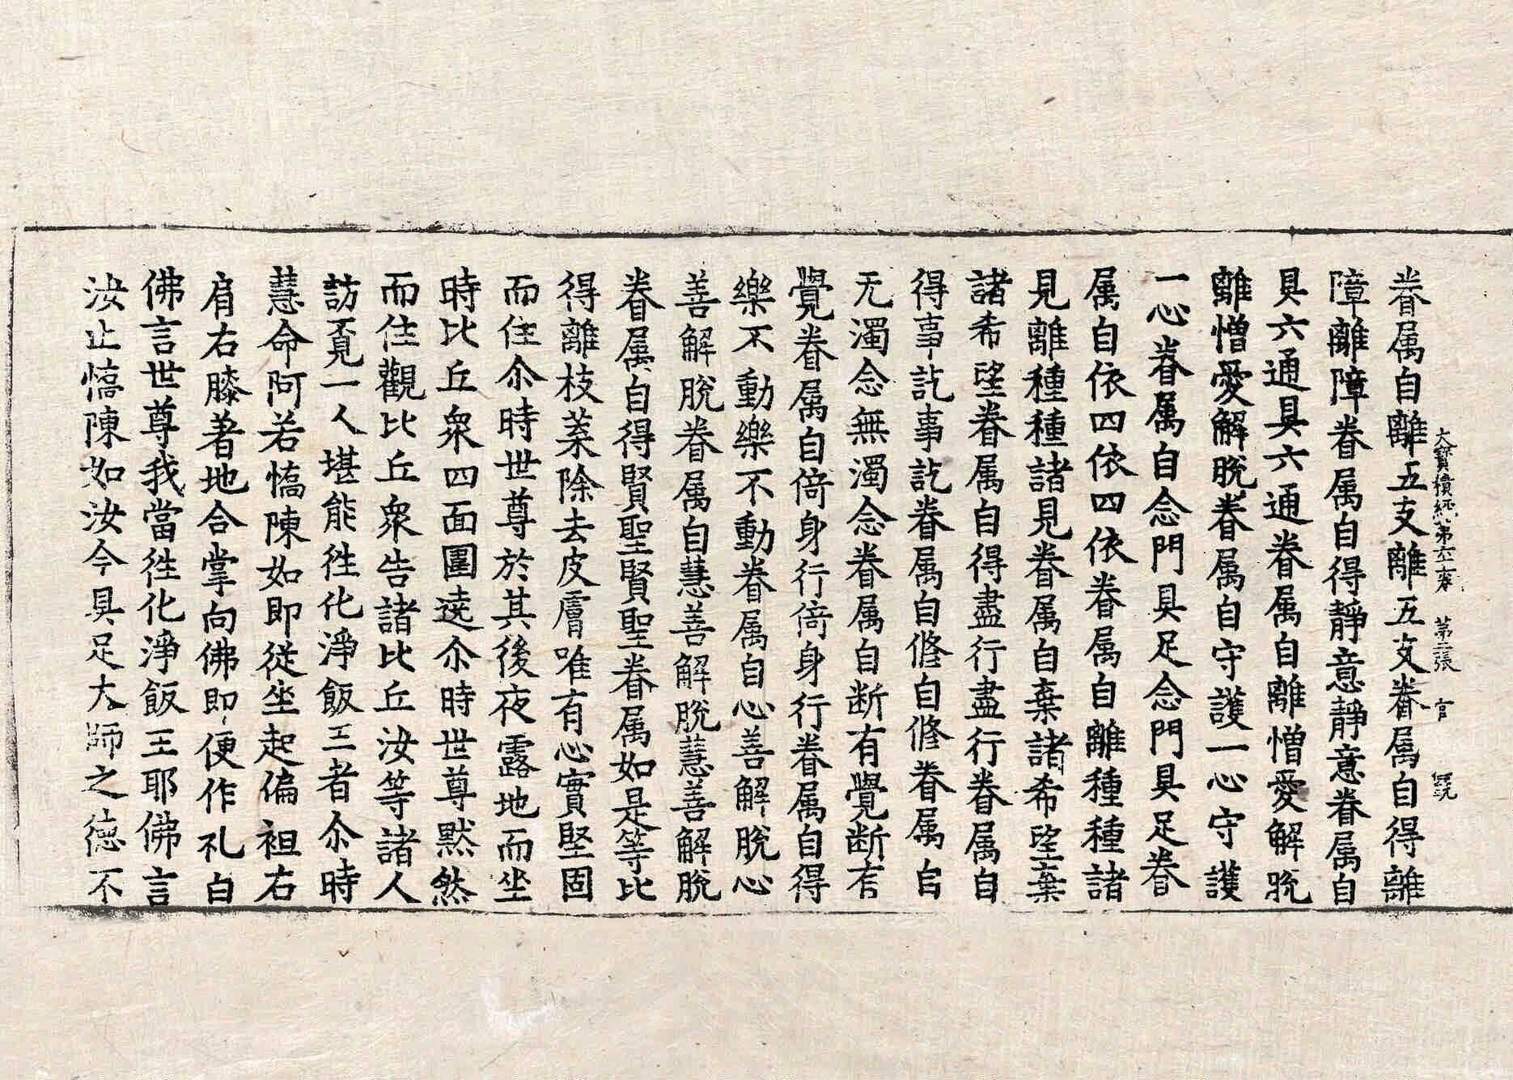 大寶積經第六十一卷 張 官
眷属自離五支離五支眷属自得離
障離障眷属自得靜意靜意眷属自
具六通具六通眷属自離憎愛解脫
離憎愛解脫眷属自守護一心守護
一心眷属自念門具足念門具足眷
属自依四依四依眷属自離種種諸
見離種種諸見眷属自棄諸希望棄
諸希望眷属自得盡行盡行眷属自
得事訖事訖眷属自修自修眷属自
无濁念無濁念眷属自断有覺断有
覺眷属自倚身行倚身行眷属自得
樂不動樂不動眷属自心善解脫心
善解脫眷属自慧善解脫慧善解脫
眷属自得賢聖賢聖眷属如是等比
得離枝葉除去皮膚唯有心實堅固
而住尒時世尊於其後夜露地而坐
時比丘衆四面圍遶尒時世尊默然
而住觀比丘衆告諸比丘汝等諸人
訪覓一人堪能往化淨飯王者尒時
慧命阿若憍陳如即從坐起偏袒右
肩右膝著地合掌向佛即便作礼白
佛言世尊我當往化淨飯王耶佛言
汝止憍陳如汝今具足大師之德不